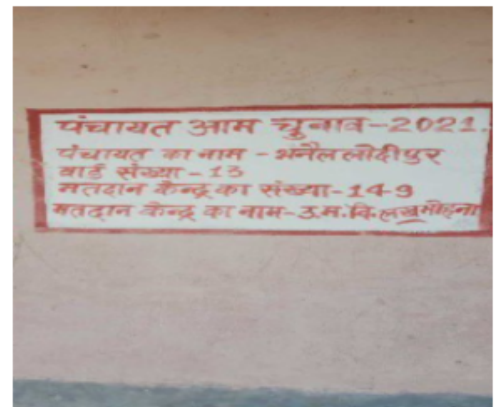 पंचायत आम चुनाव-2021
पंचायत का नाम - भनैललोदीपुर
वार्ड संख्या - 13
मतदान केन्द्र का संख्या-149
मतदान केन्द्र का नाम-उ.म.वि.लखुमोहना